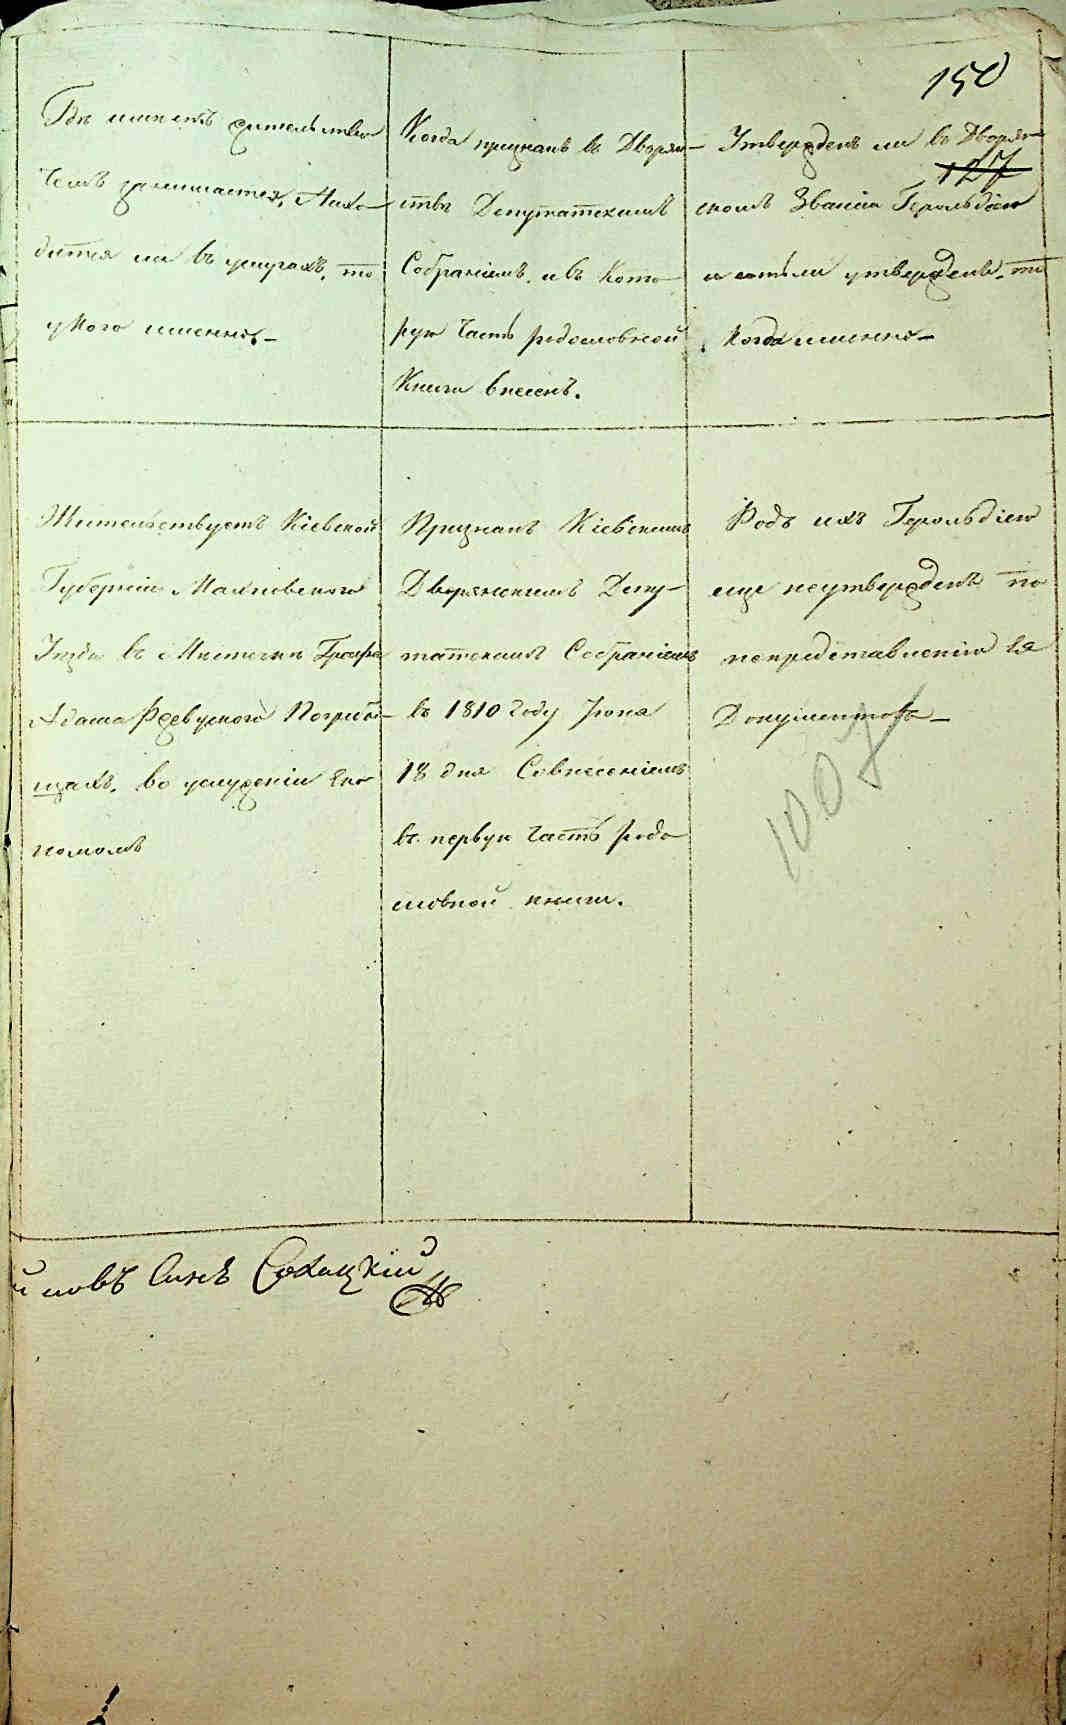 150
127
Где имеетъ жительство
Чемъ занимается, Нахо-
дится ли въ услугахъ, то
у кого именно.-
Когда признанъ въ Дворян-
ствѣ Депутатскимъ
Собраніемъ, и въ Кото-
рую Часть родословной
Книги внесенъ.
Утвержденъ ли въ Дворян-
скомъ Званіи Герольдіею
и естьли утвержденъ, то
когда именно-
Жительствуетъ Кіевской
Губерніи Махновского
Уезда въ Местечке Графа
Адама Ржевуского Погреби-
щахъ, во услуженіи Эко-
номомъ
Признанъ Кіевскимъ
Дворянскимъ Депу-
татскимъ Собраніемъ
въ 1810 Году Июня
18 дня Совнесеніемъ
въ первую Часть родо-
словной книги.
Родъ ихъ Герольдіею
еще неутвержденъ по
непредставленію Ея
Документовъ-
1007
новъ Сынъ Сохацкій